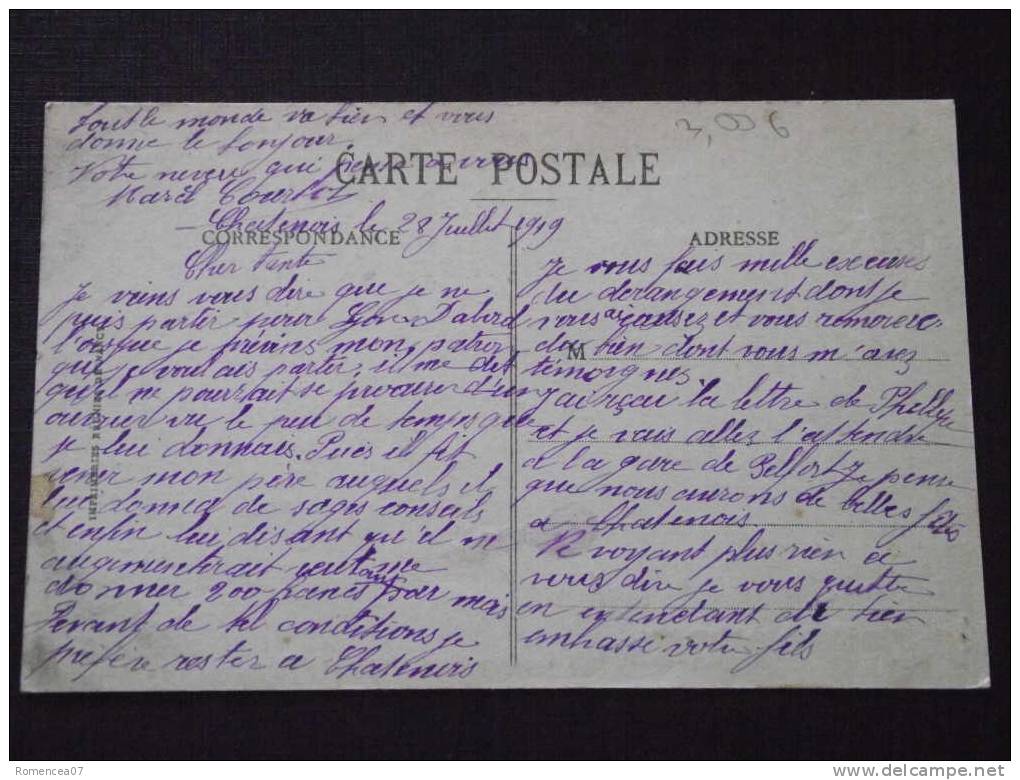 tout le monde va bien et vous
donne le bonjour
Votre neveu qui pense a vous
Marcel
3,00 6
CARTE POSTALE
Chatenois le 28 Juillet 1919
CORRESPONDANCE
ADRESSE
Cher Tente
Je viens vous dire que je ne
puis partir pour Lyon D'abord
lorsque je prévins mon patron
que je voulais partir, il me dit
qu'il ne pourrait se procurer d'un
ouvrier vu le peu de temps que
je lui donnais. Puis il fit
venir mon père auquels il
lui donna de sages conseils
et enfin lui disant qu'il m
augmenterait
donner 200 francs par mois
Devant de tel conditions je
préfère rester a Chatenois
IMPRIMERIES REUNIES DE NANCY
Je vous fais mille excuses
du dérangement dont je
vous ai causez et vous remercie
M
du bien dont vous m'avez
témoignes.
J'ai reçau la lettre de
et je vais allez l'attendre
a la gare de Belfort Je pense
que nous aurons de belles fêtes
a Chatenois.
Ne voyant plus rien a
vous dire je vous quitte
en entendant de bien
embrasse votre fils
Romencea07
delcampe.net